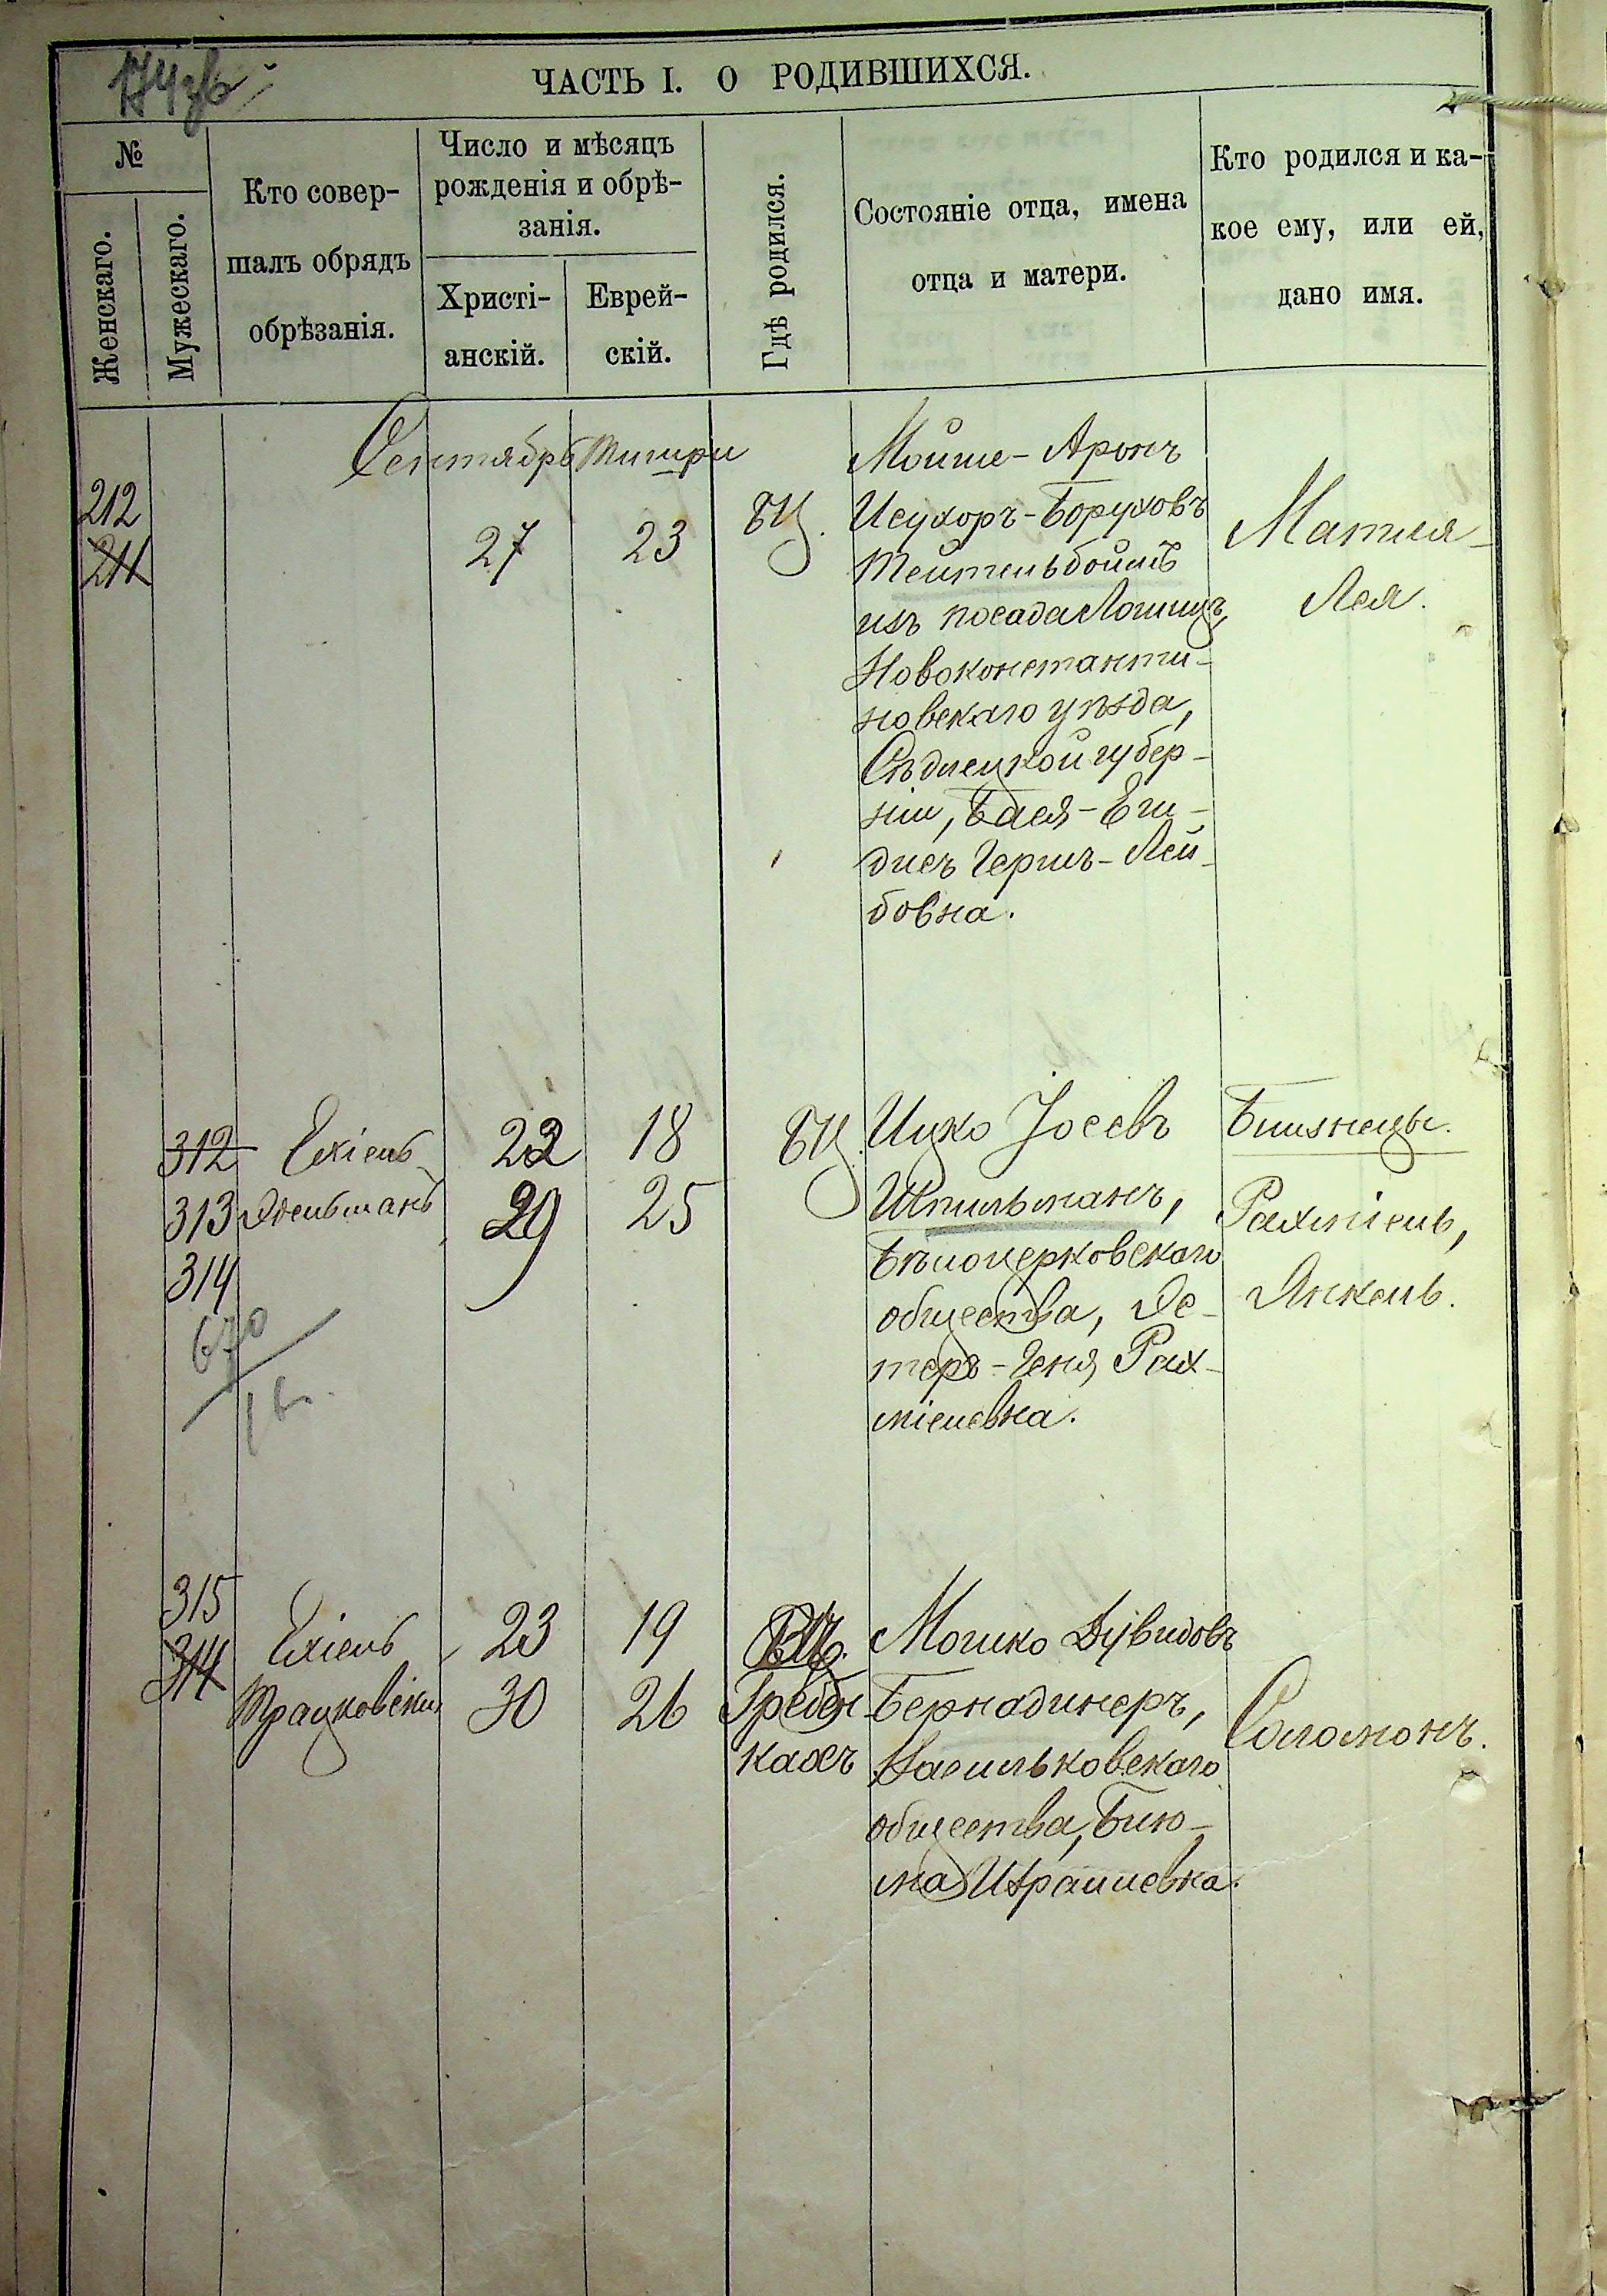 ЧАСТЬ I. О РОДИВШИХСЯ.
№
Женскаго.
Мужескаго.
Кто совер-
шалъ обрядъ
обрѣзанія.
Число и мѣсяцъ
рожденія и обрѣ-
занія.
Христі-
анскій.
Еврей-
скій.
Гдѣ родился.
Состояніе отца, имена
отца и матери.
Кто родился и ка-
кое ему, или ей,
дано имя.
Сентябрь Тишри
212
211
27
23
БЦ.
Мойше-Аронъ
Исухоръ-Боруховъ
Тейтельбоймъ
изъ посада Лошицъ,
Новоконстанти-
новскаго уѣзда,
Сѣдлецкой губер-
ніи, Бася-Ги-
дисъ Гершъ-Лей-
бовна.
Матля-
Лея.
312
313
314
670
Ехіель
Эдельманъ
22
29
18
25
БЦ.
Ицко Іосевъ
Шпильманъ,
Бѣлоцерковскаго
общества, Эс-
теръ-Геня Рах-
міелевна.
Близнецы.
Рахміель,
Янкель.
315
314
Ехіель
Трацковскій
23
30
19
26
Гребен-
кахъ
Мошко Дувидовъ
Бернадинеръ,
Васильковскаго
общества, Блю-
ма Израилевна.
Соломонъ.